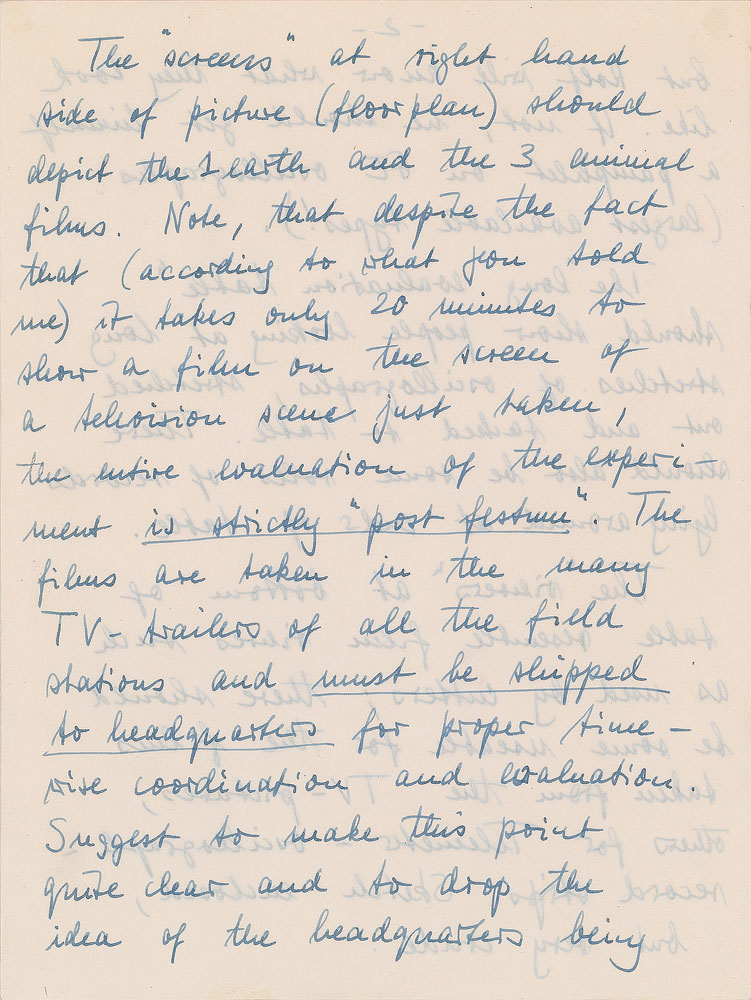 The "screens" at right hand
side of picture (floor plan) should
depict the 1 earth and the 3 animal
films. Note, that despite the fact
that (according to what you told
me) it takes only 20 minutes to
show a film on the screen of
a television scene just taken,
the entire evaluation of the experi-
ment is strictly "post festum". The
films are taken in the many
TV-trailers of all the field
stations and must be shipped
to headquarters for proper time-
wise coordination and evaluation.
Suggest to make this point
quite clear and to drop the
idea of the headquarters being